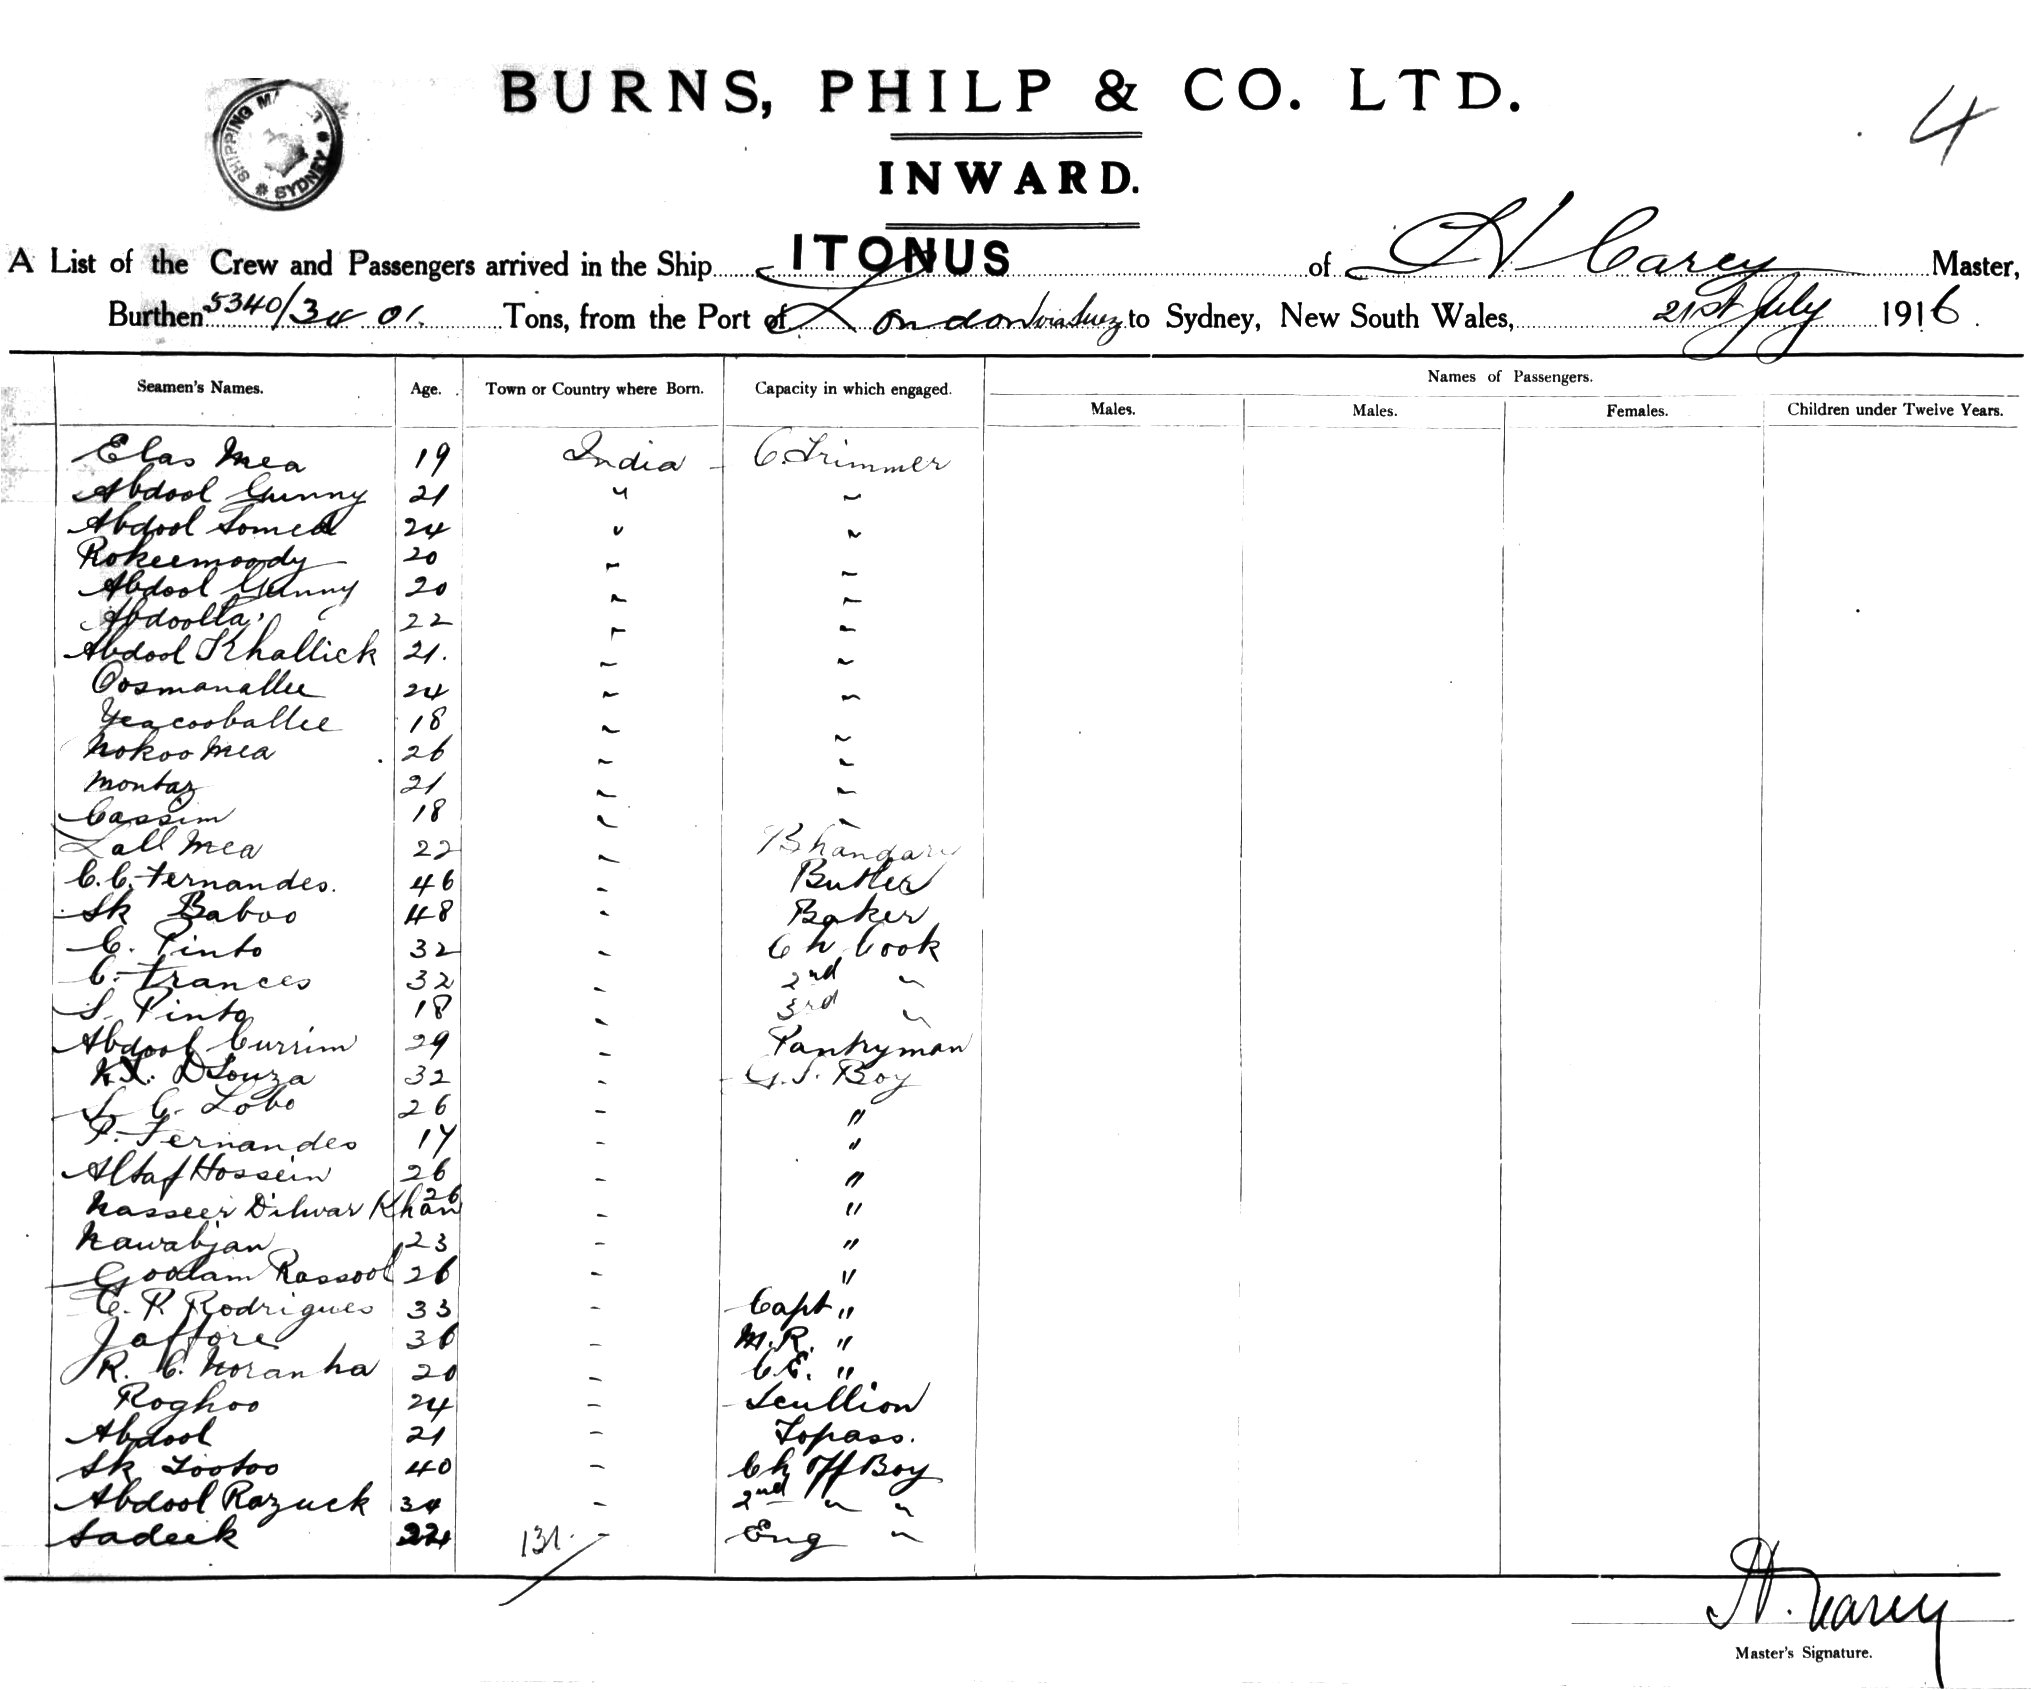 BURNS, PHILP & CO. LTD.
4
SHIPPING MA SYDNEY
INWARD.
A List of the Crew and Passengers arrived in the Ship ITONUS of H Carey Master,
Burthen 5340/3401. Tons, from the Port of London via Suez to Sydney, New South Wales, 21st July 1916.
Seamen's Names. Age. Town or Country where Born. Capacity in which engaged. Names of Passengers.
Males. Males. Females. Children under Twelve Years.
Elas Mea 19 India - C. Trimmer
Abdool Gunny 21 " "
Abdool Somed 24 " "
Rokeemoody 20 " "
Abdool Gunny 20 " "
Abdoolla 22 " "
Abdool Khallick 21. " "
Oosmanallee 24 " "
Yeacooballee 18 " "
Nokoo Mea 26 " "
Montaz 21 " "
Cassim 18 " "
Lall Mea 22 " Bhandary
C. C. Fernandes. 46 " Butler
Sk Baboo 48 " Baker
C. Pinto 32 " Ch Cook
C. Frances 32 " 2nd "
S. Pinto 18 " 3rd "
Abdool Currim 29 " Pantryman
N. X. DSouza 32 " G. S. Boy
S. C. Lobo 26 " "
P. Fernandes 17 " "
Altaf Hossein 26 " "
Nasseer Dilwar Khan 26 " "
Nawabjan 23 " "
Goolam Rassool 26 " "
C. P. Rodrigues 33 " Capt "
Jaffore 36 " M. R. "
R. C. Noranha 20 " C. E. "
Roghoo 24 " Scullion
Abdool 21 " Topass.
Sk Tootoo 40 " Ch Off Boy
Abdool Razuck 34 " 2nd " "
Sadeek 131. " Eng "
H. Carey
Master's Signature.